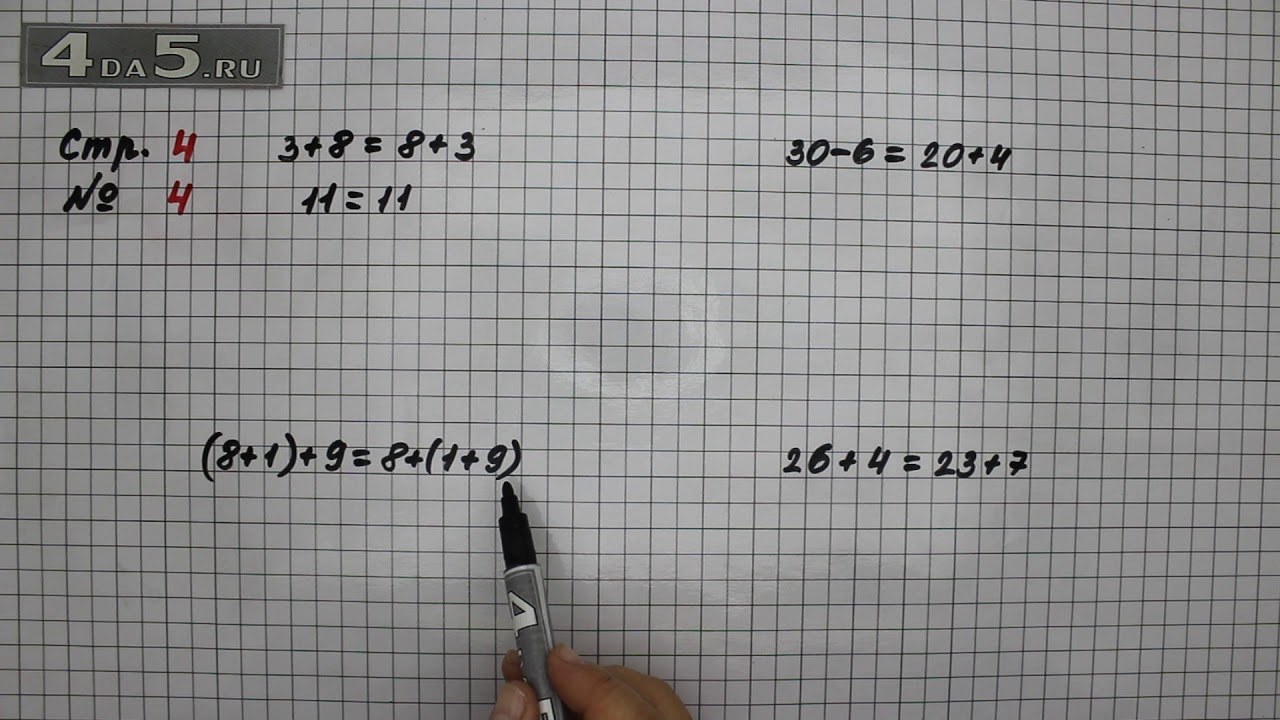 4DA5.RU
Стр. 4 3+8=8+3 30-6=20+4
№ 4 11=11
(8+1)+9=8+(1+9) 26+4=23+7